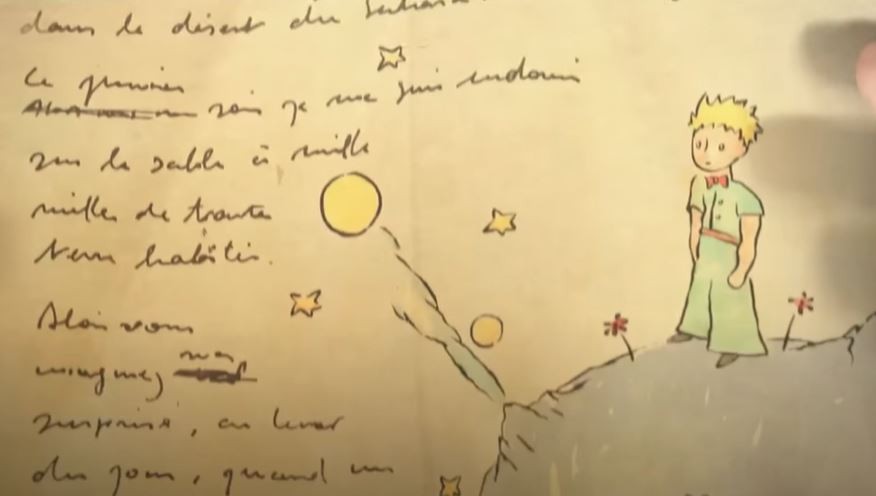 dans le désert du Sahara.
Le premier
soir je me suis endormi
sur le sable à mille
milles de toute
terre habitée.
Alors vous
imaginez ma
surprise, au lever
du jour, quand un